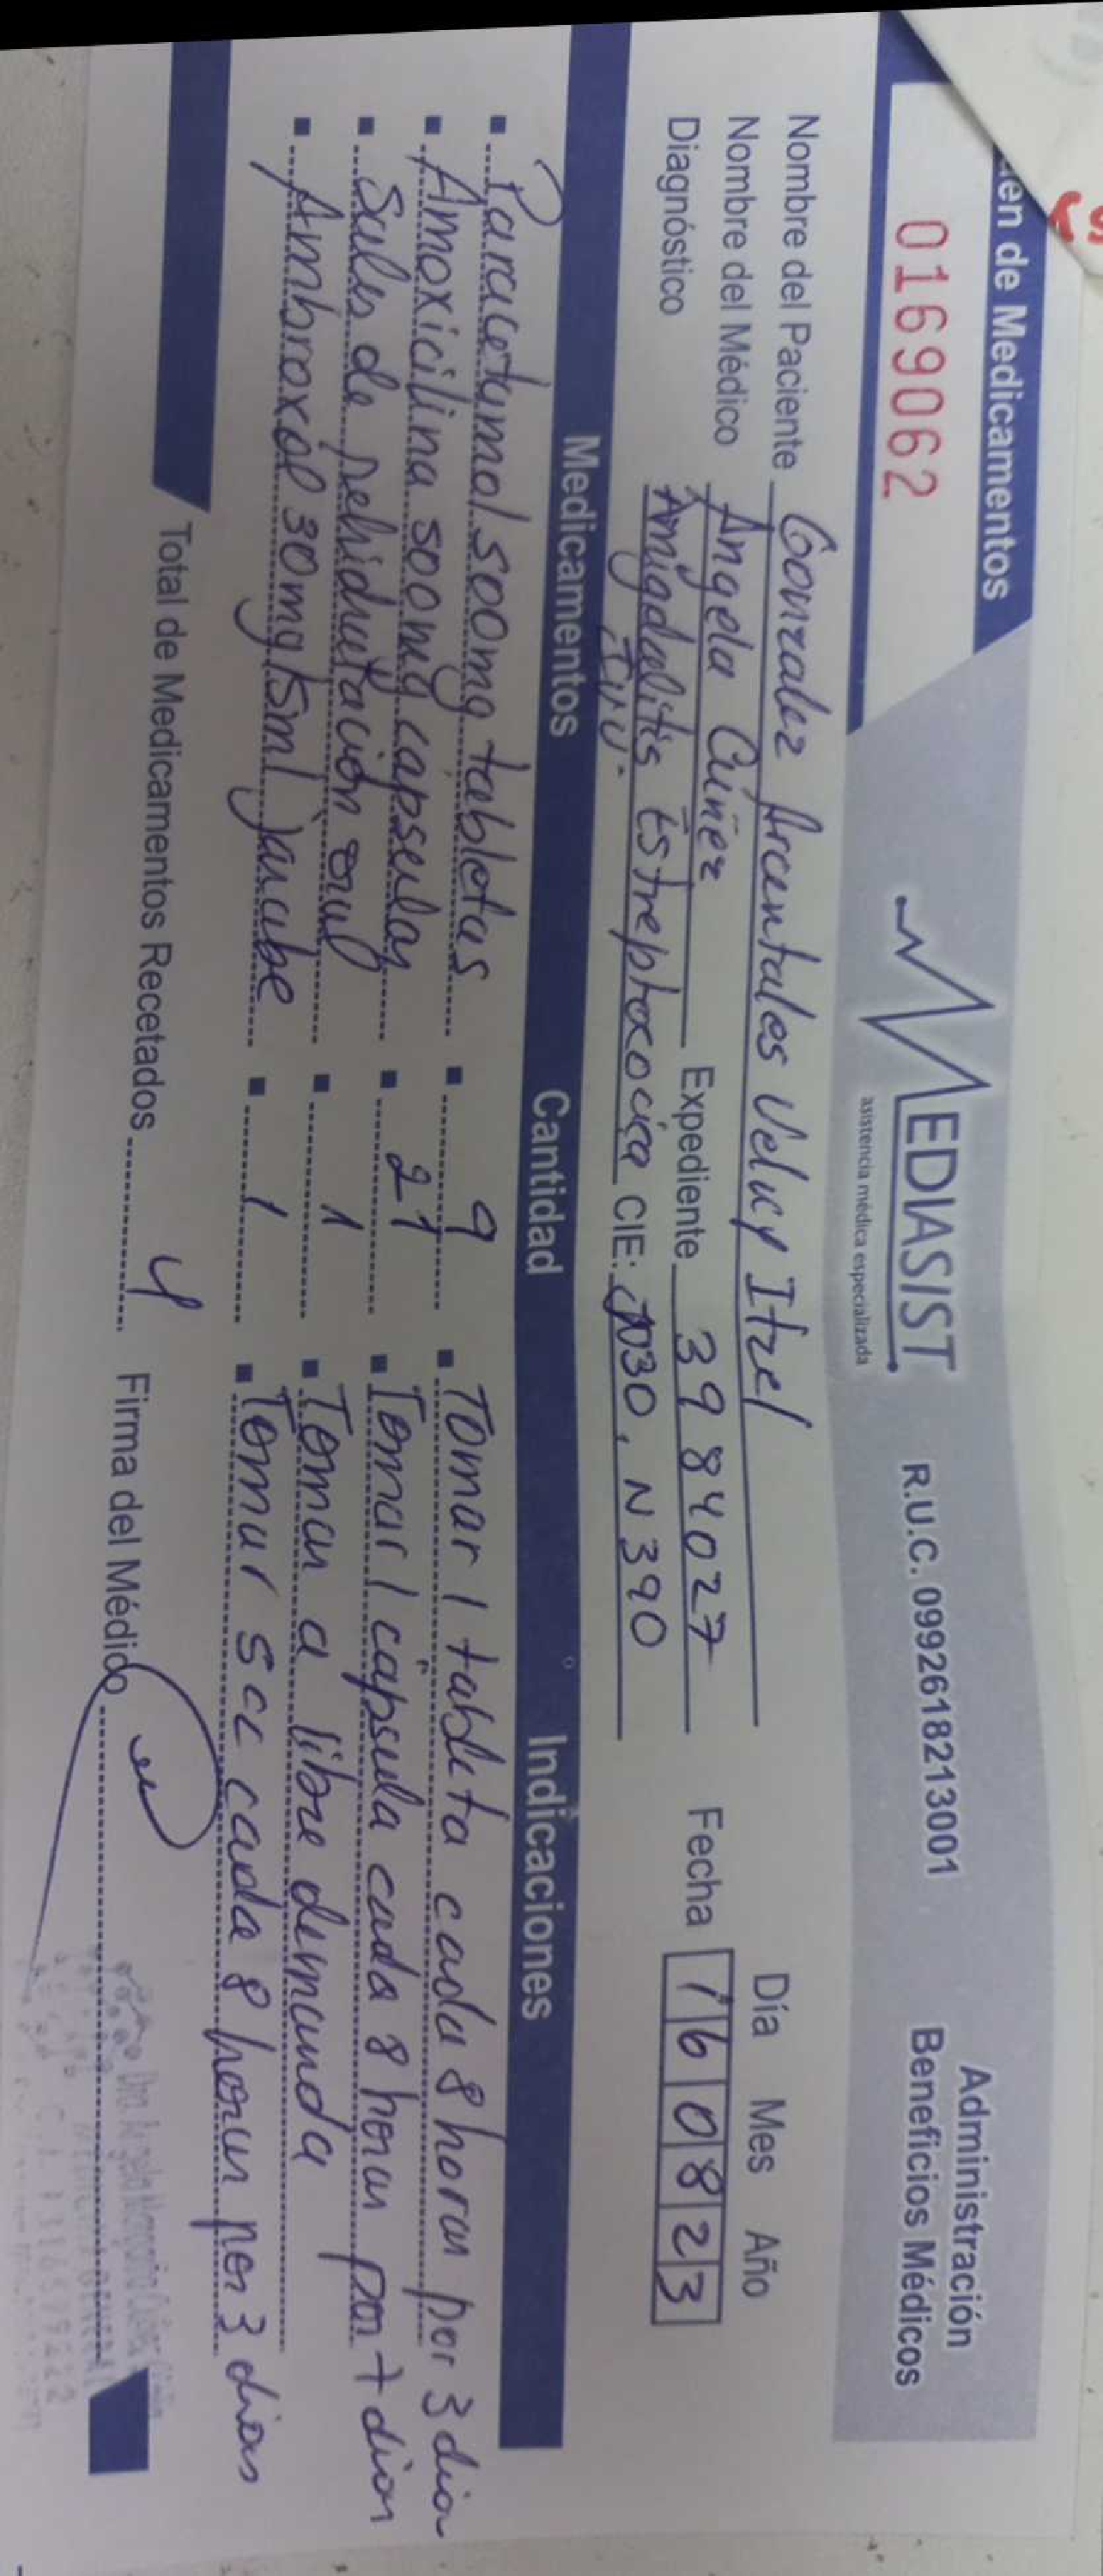 en de Medicamentos
0169062
MEDIASIST
asistencia médica especializada
R.U.C. 0992618213001
Administración
Beneficios Médicos
Nombre del Paciente Gonzalez Arcentales Velky Itzel
Nombre del Médico Angela Cúñez Expediente 3984027
Diagnóstico Amigdalitis Estreptococica CIE: J030, N390
IVU.
Día Mes Año
Fecha 16 08 23
Medicamentos Cantidad Indicaciones
Paracetamol 500mg tabletas 9 Tomar 1 tableta cada 8 horas por 3 dias
Amoxicilina 500mg capsulas 21 Tomar 1 capsula cada 8 horas por 7 dias
Sales de rehidratación oral 1 Tomar a libre demanda
Ambroxol 30mg/5ml jarabe 1 Tomar 5cc cada 8 horas por 3 dias
Total de Medicamentos Recetados 4 Firma del Médico